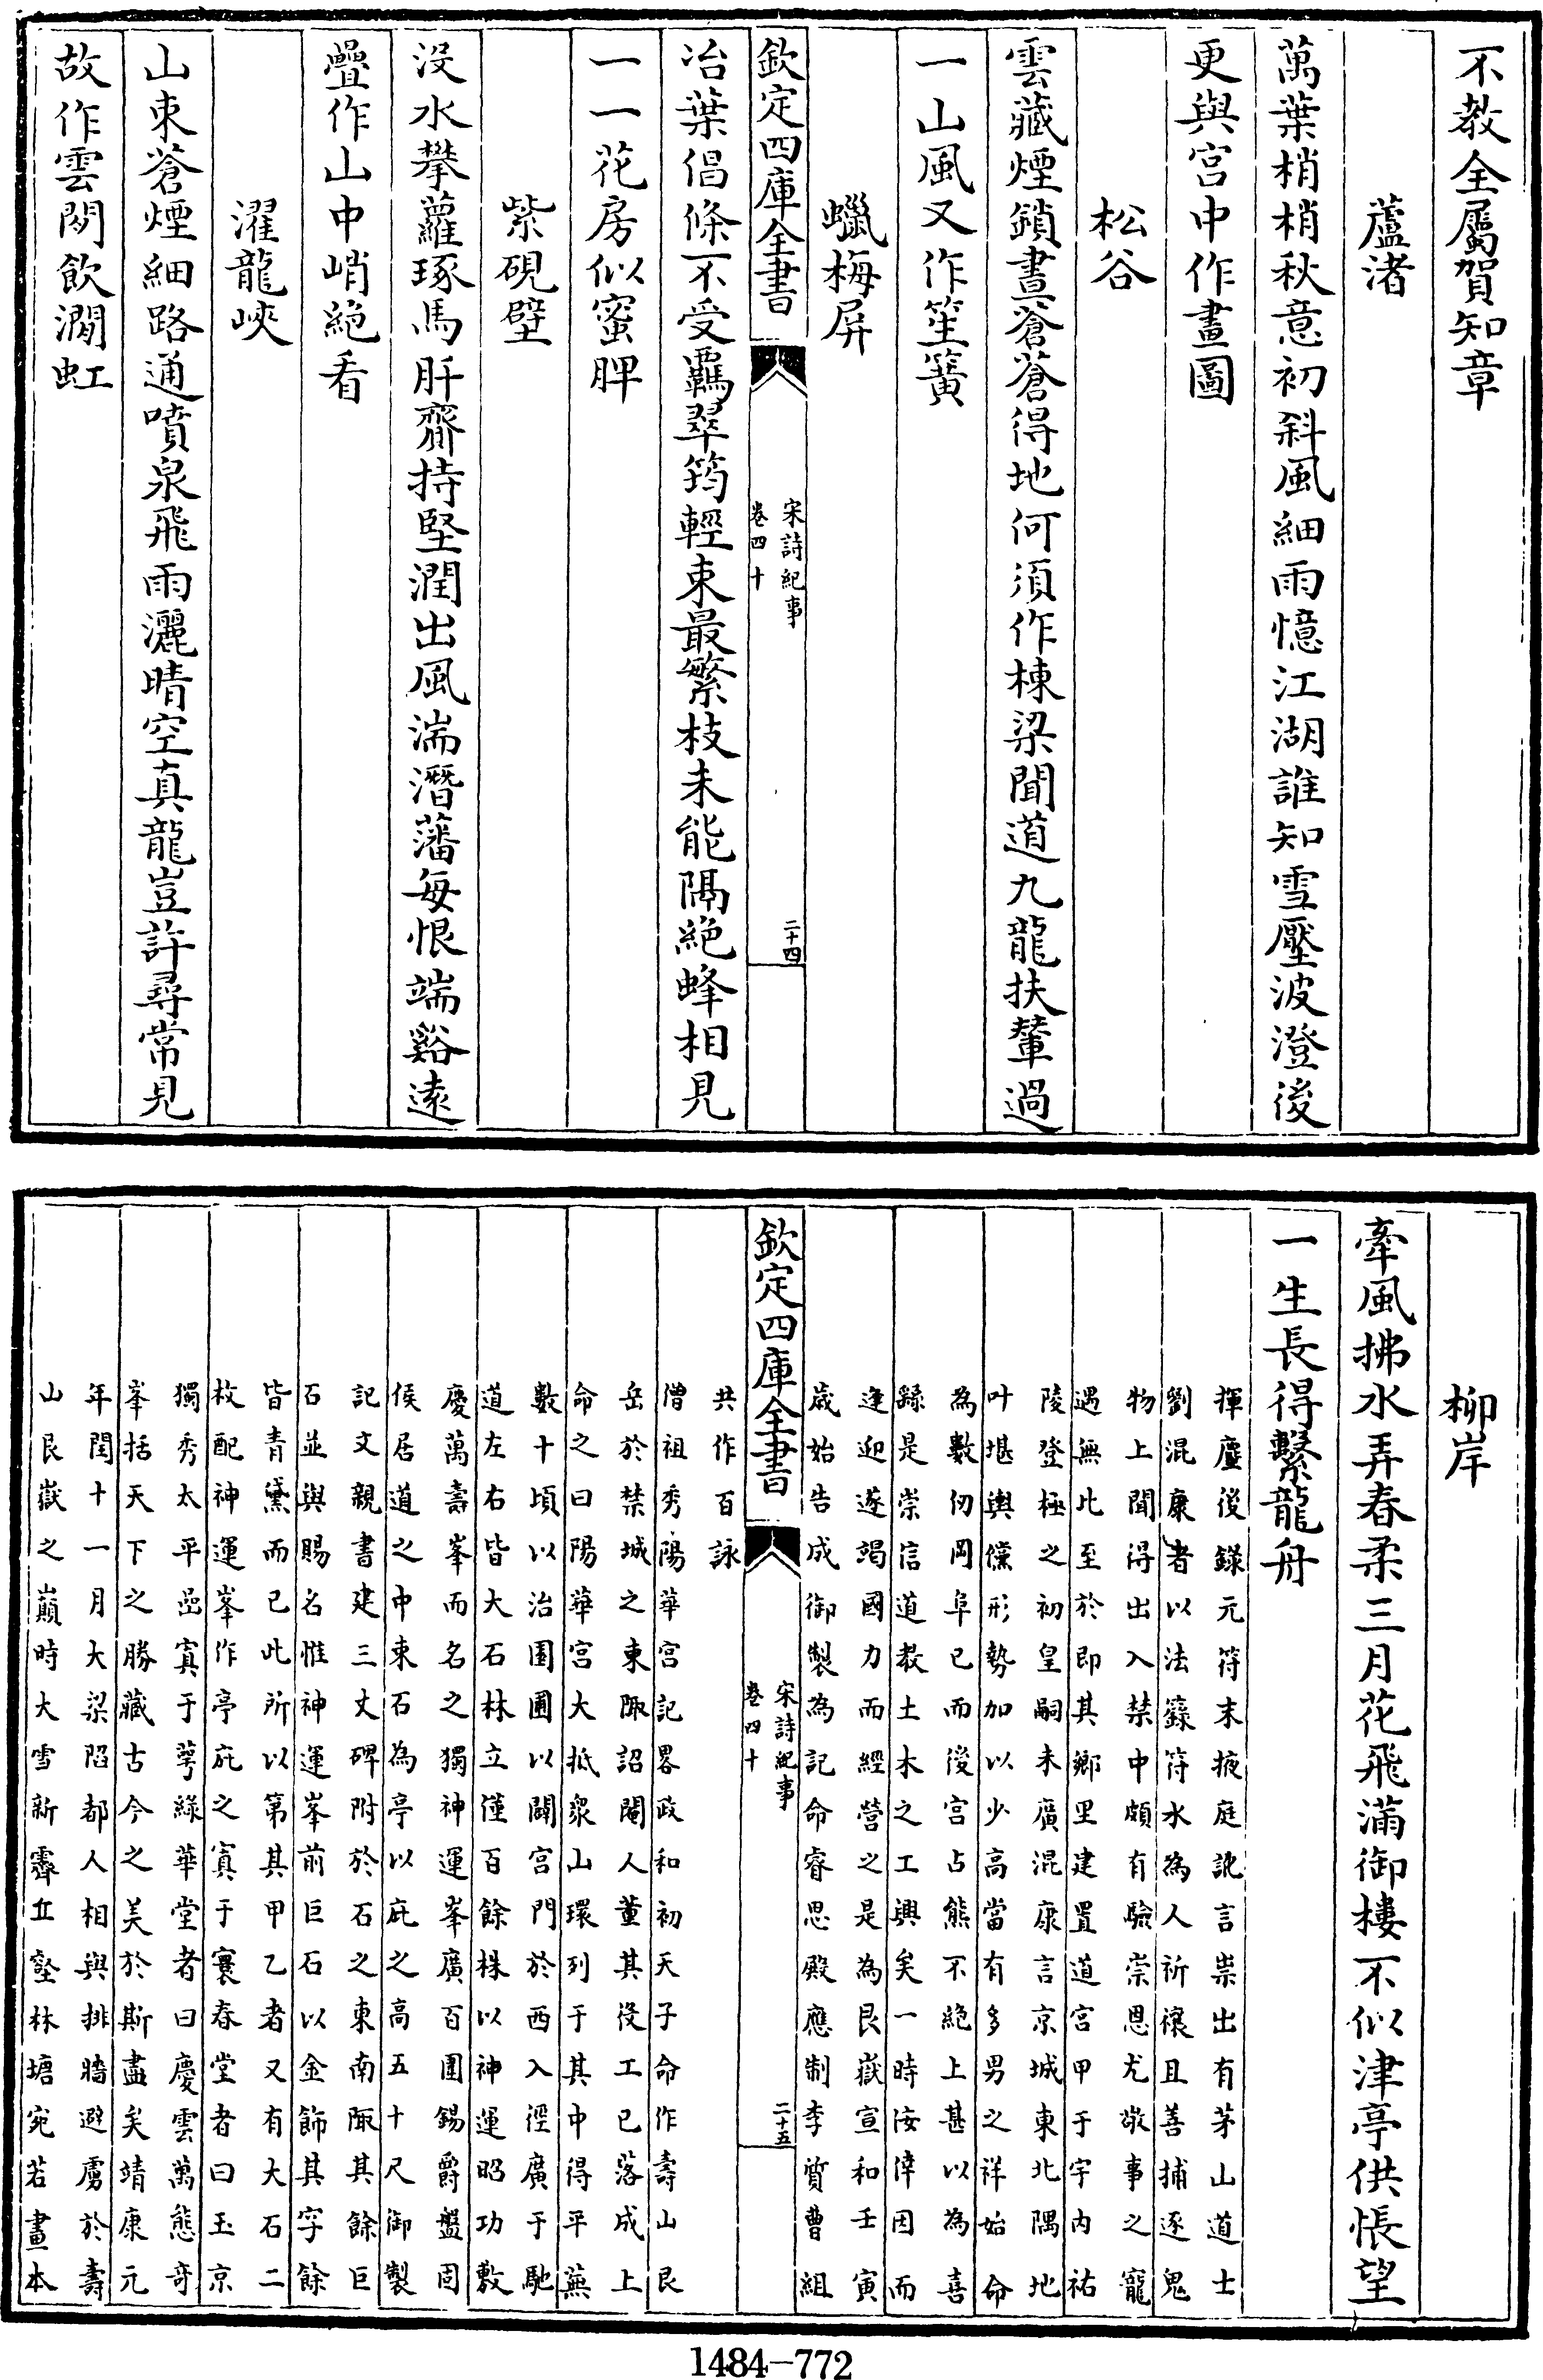 不教全屬賀知章
蘆渚
萬葉梢梢秋意初斜風細雨憶江湖誰知雪壓波澄後
更與宮中作畫圖
松谷
雲藏煙鎖晝蒼蒼得地何須作棟梁聞道九龍扶輦過
一山風又作笙簧
蠟梅屏
欽定四庫全書
宋詩紀事
卷四十
二十四
冶葉倡條不受羈翠筠輕束最繁枝未能隔絶蜂相見
一一花房似蜜脾
紫硯壁
没水攀蘿琢馬肝齋持堅潤出風湍潛藩每恨端谿逺
疊作山中峭絶看
濯龍峽
山束蒼煙細路通噴泉飛雨灑晴空真龍豈許尋常見
故作雲閒飲澗虹
柳岸
牽風拂水弄春柔三月花飛滿御樓不似津亭供悵望
一生長得繫龍舟
揮麈後錄元符末掖庭訛言祟出有茅山道士
劉混康者以法籙符水為人祈禳且善捕逐鬼
物上聞得出入禁中頗有驗崇恩尤敬事之寵
遇無比至於即其鄉里建置道宮甲于宇内祐
陵登極之初皇嗣未廣混康言京城東北隅地
叶堪輿儻形勢加以少高當有多男之祥始命
為數仞岡阜已而後宮占熊不絶上甚以為喜
繇是崇信道教土木之工興矣一時汝倖因而
逢迎遂竭國力而經營之是為艮嶽宣和壬寅
嵗始告成御製為記命睿思殿應制李質曹組
欽定四庫全書
宋詩紀事
卷四十
二十五
共作百詠
僧祖秀陽華宮記畧政和初天子命作壽山艮
岳於禁城之東陬詔閹人董其役工已落成上
命之曰陽華宮大抵衆山環列于其中得平蕪
數十頃以治園圃以闢宮門於西入徑廣于馳
道左右皆大石林立僅百餘株以神運昭功敷
慶萬壽峯而名之獨神運峯廣百圍錫爵盤固
侯居道之中束石為亭以庇之高五十尺御製
記文親書建三丈碑附於石之東南陬其餘巨
石並與賜名惟神運峯前巨石以金飾其字餘
皆青黛而已此所以第其甲乙者又有大石二
枚配神運峯作亭庇之寘于寰春堂者曰玉京
獨秀太平嵒寘于萼緑華堂者曰慶雲萬態奇
峯括天下之勝藏古今之美於斯盡矣靖康元
年閏十一月大梁䧟都人相與排牆避虜於壽
山艮嶽之巔時大雪新霽丘壑林塘宛若畫本
1484—772